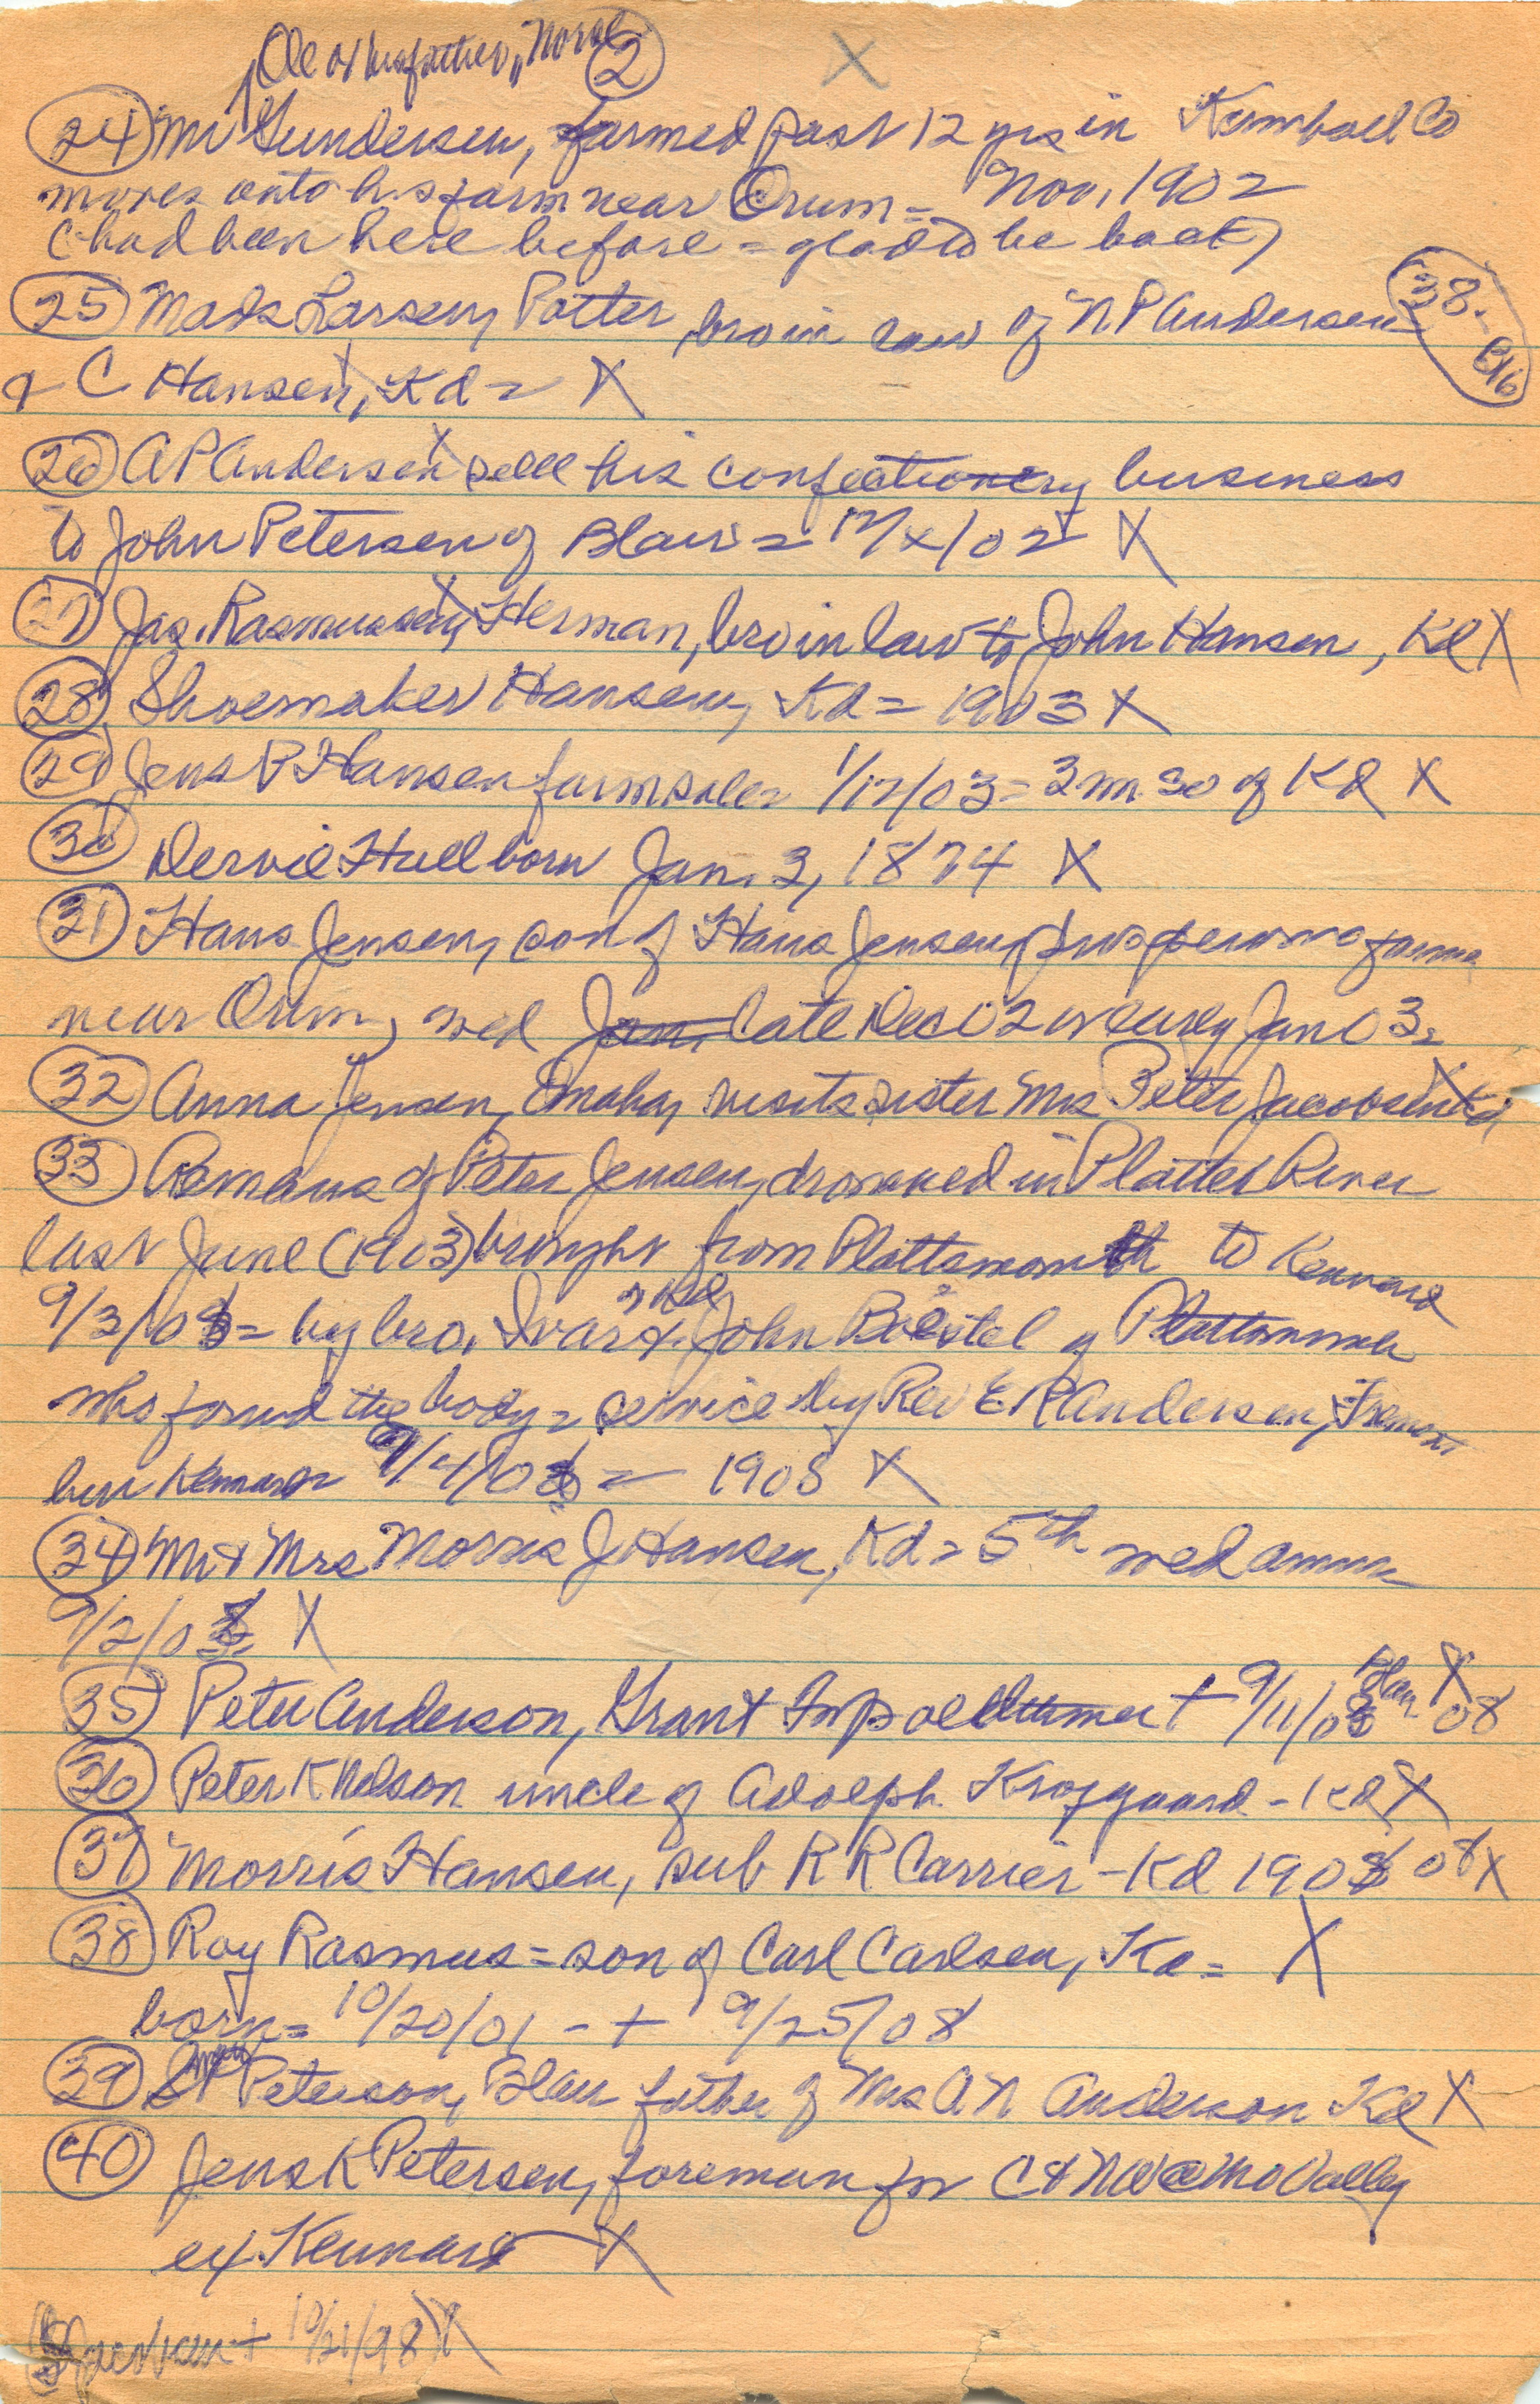 Ole or his father, 2 X
24 Mr Gundersen, farmed past 12 yrs in Kemball Co
moves onto his farm near Orum = Nov, 1902
(had been here before = glad to be back)
25 Mads Larsen, Potter, bro in law of N P Andersen 38.
& C Hansen, Kd = X
26 A P Andersen sell his confectionery business
to John Petersen of Blair = 12/x/02 X
27 Jas. Rasmussen, Herman, bro in law to John Hansen, Kd X
28 Shoemaker Hansen, Kd = 1903 X
29 Jens P Hansen farm sale = 1/12/03 = 3 m so of Kd X
30 Hull born Jan. 3, 1874 X
31 Hans Jensen, son of Hans Jensen, farmer
near Orum, wed Jan. late Dec 02 or early Jan 03 =
32 Anna Jensen, Omaha, visits sister Mrs Peter Jacobsen Kd
33 Remains of Peter Jensen, drowned in Platte River
last June (1903) brought from Plattsmouth to Kennard
9/3/08 = by bro. Ivar of Kd & John of Plattsmouth
who found the body = service by Rev E R Andersen, Fremont
bur Kennard 9/4/08 = 1908 X
34 Mr & Mrs Morris J Hansen, Kd = 5th wed anniv
9/2/08 X
35 Peter Anderson, Grant Imp old timer + 9/11/08 08 X
36 Peter K Nelson uncle of Adolph Krogaard - Kd X
37 Morris Hansen, sub R R Carrier - Kd 1908 08 X
38 Roy Rasmus = son of Carl Carlsen, Kd = X
born = 10/20/01 - + 9/25/08
39 Peterson, Blair father of Mrs A N Anderson Kd X
40 Jens K Petersen, foreman for C & NW @ Mo Valley
ex Kennard X
+ 10/21/98 X